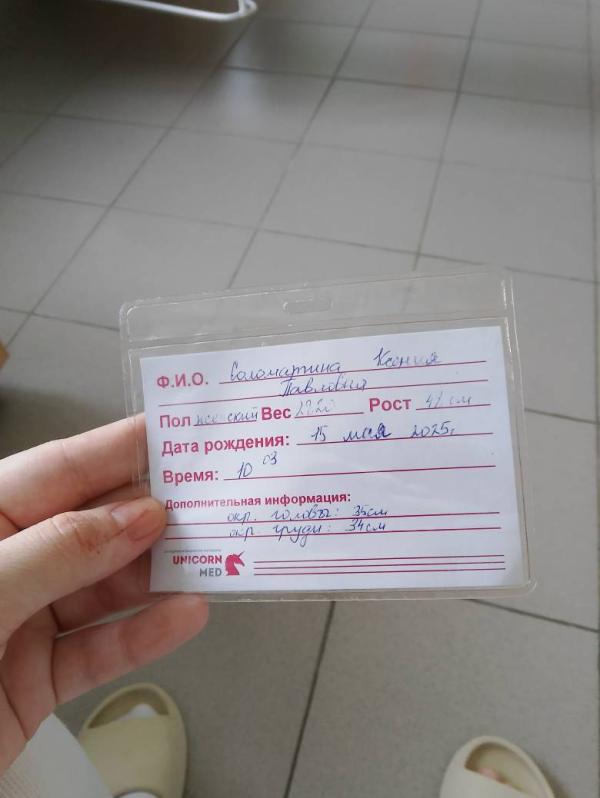 Ф.И.О. Соломатина Ксения
Павловна
Пол женский Вес 2820 Рост 47 см
Дата рождения: 15 мая 2025г
Время: 10 03
Дополнительная информация:
окр. головы: 35см
окр. груди: 34см
UNICORN
MED